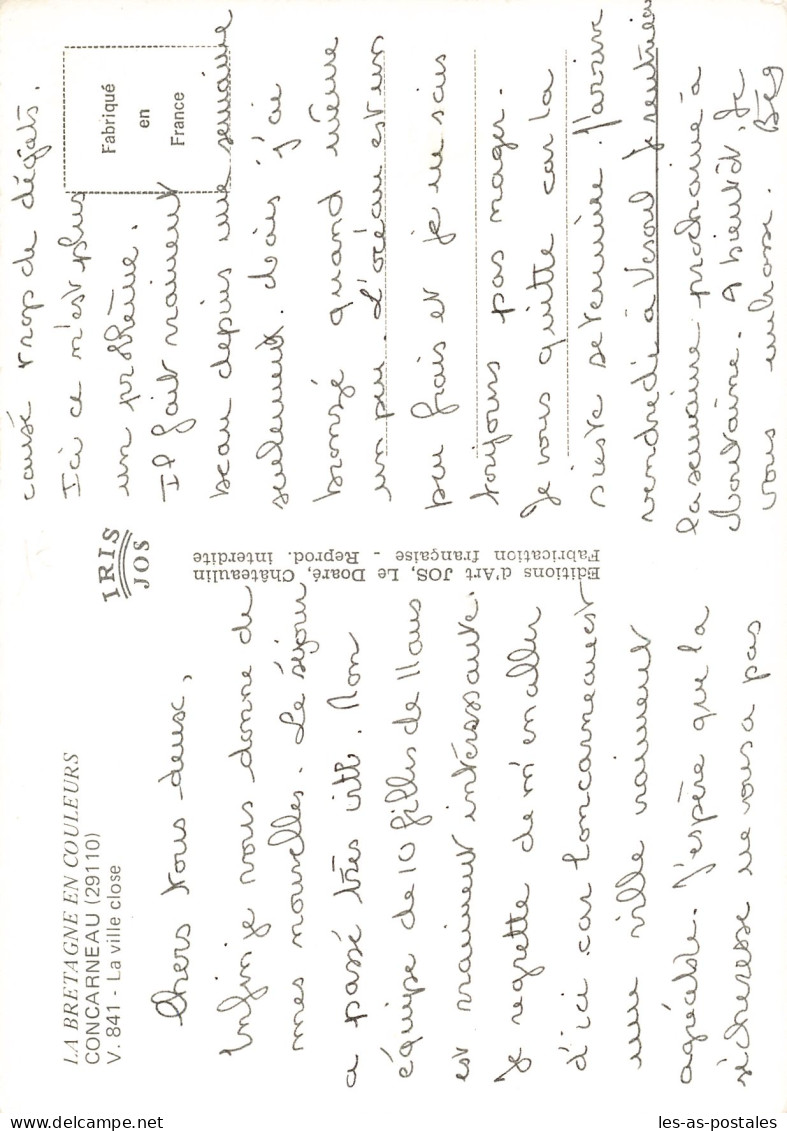 LA BRETAGNE EN COULEURS
CONCARNEAU (29110)
V. 841 - La ville close
Chers tous deux,
Enfin je vous donne de
mes nouvelles. Le séjour
a passé très vite. Mon
équipe de 10 filles de 11 ans
est vraiment intéressante.
Je regrette de m'en aller
d'ici car Concarneau est
une ville vraiment
agréable. J'espère que la
sécheresse ne vous a pas
IRIS
JOS
Editions d'Art JOS, Le Doaré, Châteaulin
Fabrication française - Reprod. interdite
Fabriqué
en
France
causé trop de dégâts.
Ici ce n'est plus
un problème.
Il fait vraiment
beau depuis une semaine
seulement. Mais j'ai
bronzé quand même
un peu. L'océan est un
peu frais et je ne sais
toujours pas nager.
Je vous quitte car la
sieste se termine. J'arrive
vendredi à Vesoul je rentrerai
la semaine prochaine à
Montaine. A bientôt. Je
vous embrasse. Bég
les-as-postales.com